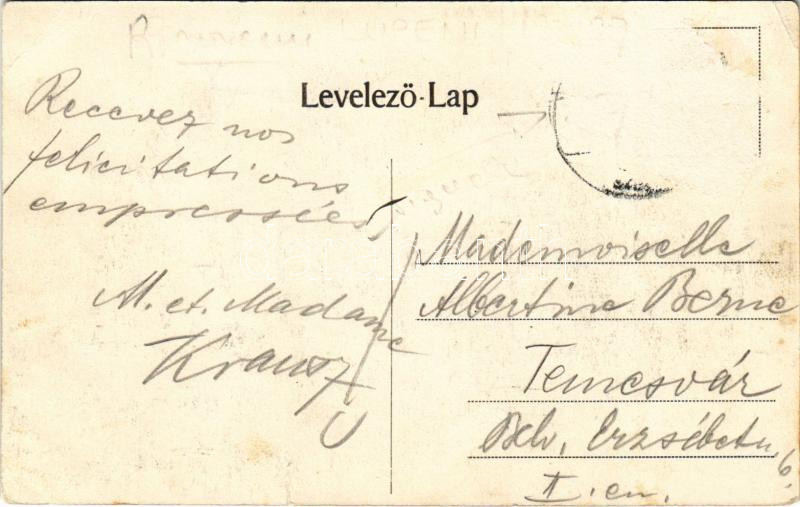 Levelezö-Lap
Recevez nos
felicitations
empressées,
M. et. Madame
Krausz
Mademoiselle
Albertine Berne
Temesvár
Belv. Erzsébet u. 6.
II. em.